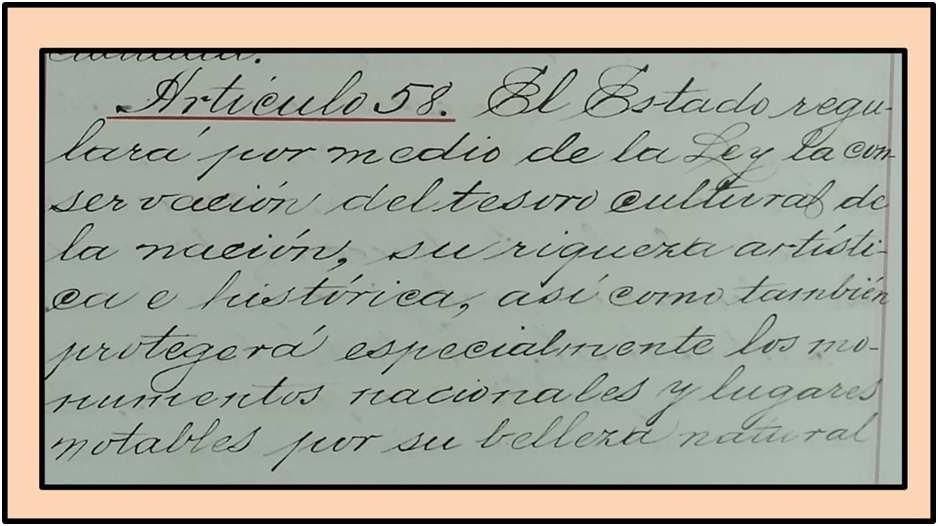 Artículo 58. El Estado regu-
lará por medio de la Ley la con-
servación del tesoro cultural de
la nación, su riqueza artísti-
ca e histórica, así como también
protegerá especialmente los mo-
numentos nacionales y lugares
notables por su belleza natural